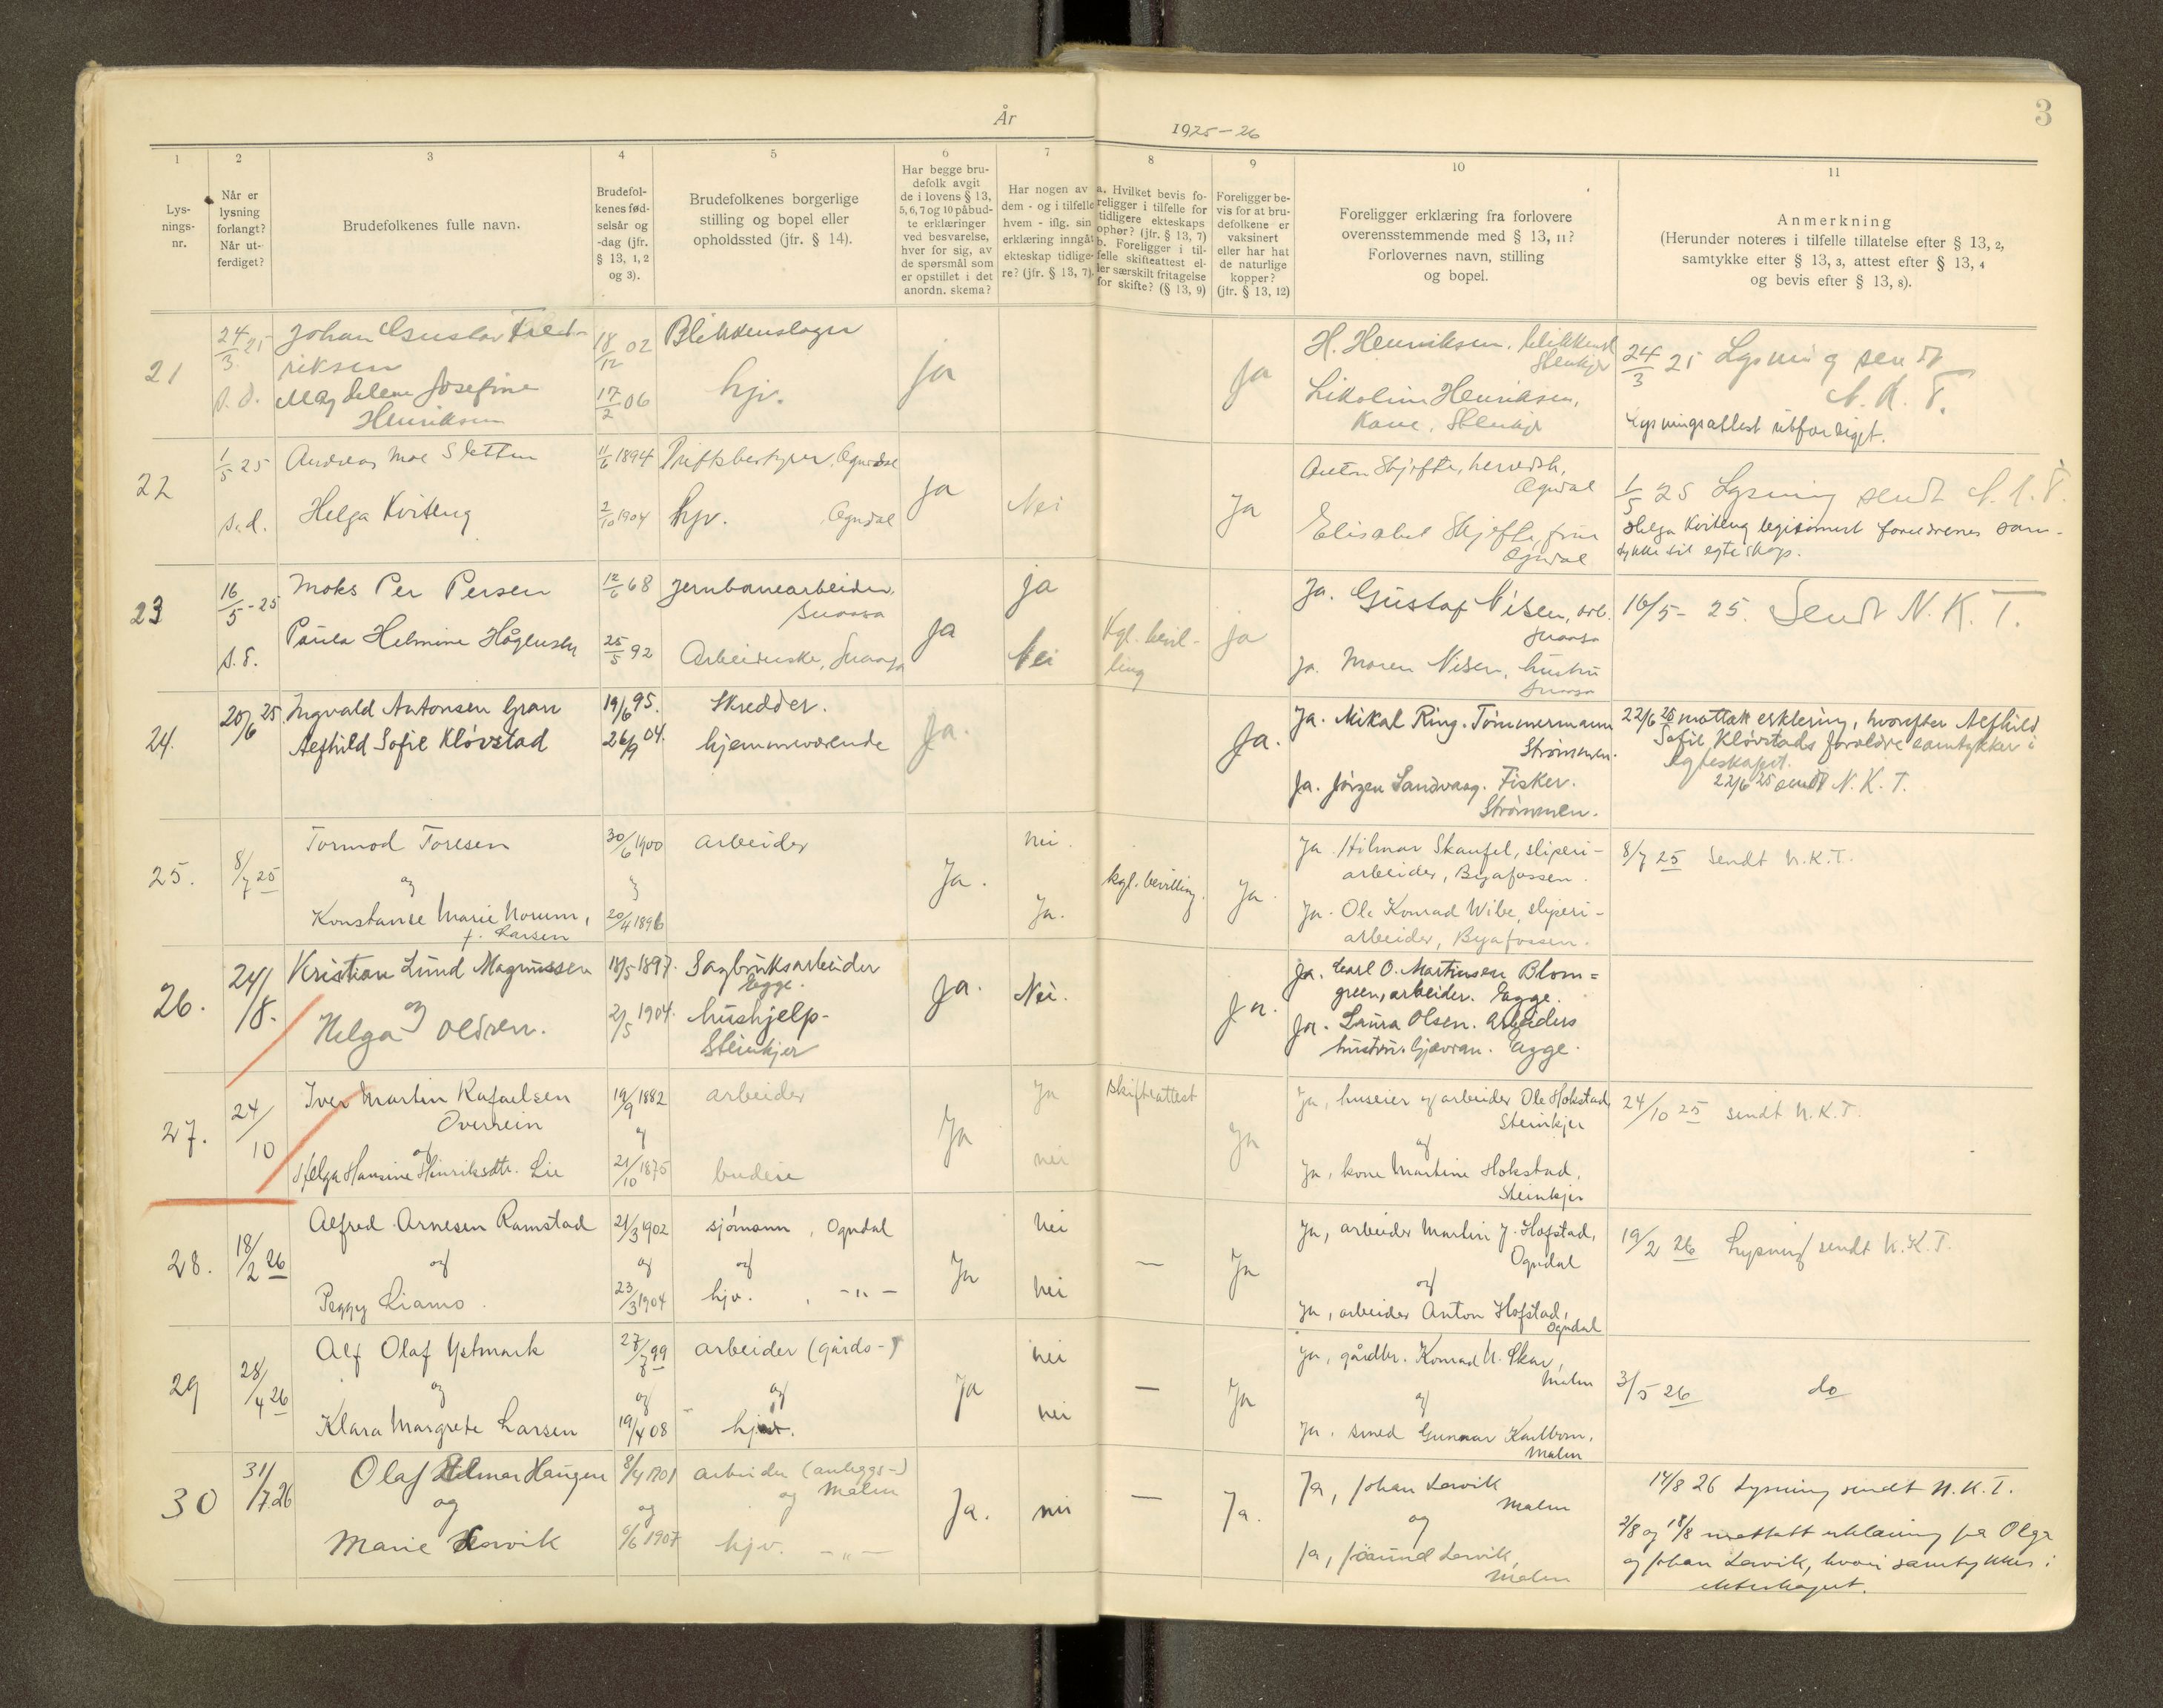 År 1925-26
3
1 2 3 4 5 6 7 8 9 10 11
Lys-
nings-
nr.
Når er
lysning
forlangt?
Når ut-
ferdiget?
Brudefolkenes fulle navn.
Brudefol-
kenes fød-
selsår og
-dag (jfr.
§ 13, 1, 2
og 3).
Brudefolkenes borgerlige
stilling og bopel eller
opholdssted (jfr. § 14).
Har begge bru-
defolk avgit
de i lovens § 13,
5, 6, 7 og 10 påbud-
te erklæringer
ved besvarelse,
hver for sig, av
de spørsmål som
er opstillet i det
anordn. skema?
Har nogen av
dem - og i tilfelle
hvem - iflg. sin
erklæring inngåt
ekteskap tidlige-
re? (jfr. § 13, 7).
a. Hvilket bevis fo-
religger i tilfelle for
tidligere ekteskaps
ophør? (jfr. § 13, 7)
b. Foreligger i til-
felle skifteattest el-
ler særskilt fritagelse
for skifte? (§ 13, 9)
Foreligger be-
vis for at bru-
defolkene er
vaksinert
eller har hat
de naturlige
kopper?
(jfr. § 13, 12)
Foreligger erklæring fra forlovere
overensstemmende med § 13, 11?
Forlovernes navn, stilling
og bopel.
Anmerkning
(Herunder noteres i tilfelle tillatelse efter § 13, 2,
samtykke efter § 13, 3, attest efter § 13, 4
og bevis efter § 13, 8).
21
24/3 25
s. d.
Johan Gustav Fred-
riksen
Magdelene Josefine
Henriksen
18/12 02
17/2 06
Blikkenslager
hjv.
ja
ja
H. Henriksen, blikkensl
Stenkjer
Likoline Henriksen,
Kone, Stenkjer
24/3 25 Lysning sendt
N. K. T.
Lysningsattest utferdiget.
22
1/5 25
s. d.
Andreas Moe Sletten
Helga Kvitteng
11/6 1894
2/10 1904
Driftsbestyrer, Ogndal
hjv. Ogndal
ja
Nei
Ja
Anton Skjefte, herredsk,
Ogndal
Elisabet Skjefte, frue
Ogndal
1/5 25 Lysning sendt N. K. T.
Helga Kvitteng legitimert foreldrenes sam-
tykke til egteskap.
23
16/5 - 25
s. d.
Moks Per Persen
Paula Helmine
12/6 68
25/5 92
Jernbanearbeider,
Snaasa
Arbeiderske, Snaasa
ja
ja
Nei
Kgl. bevil-
ling
ja
Ja. Gustaf Nilsen, arb.
Snaasa
ja. Maren Nilsen, hustru
Snaasa
16/5 - 25. Sendt N. K. T.
24.
20/6 25.
Ingvald Antonsen Gran
Aefhild Sofie Kløvstad
19/6 95.
26/9 04.
Skredder.
hjemmeværende
Ja.
Ja.
Ja. Mikal Ring. Tømmermann
Strømmen.
Ja. Jørgen Sandvaag. Fisker.
Strømmen.
22/6 25 mottatt erklering, hvorefter Aefhild
Sofie Kløvstads foreldre samtykker i
egteskapet.
22/6 25 sendt N. K. T.
25.
8/7 25
Tormod Toresen
og
Konstanse Marie Norum,
f. Larsen
30/6 1900
og
20/4 1896
arbeider
Ja.
nei.
Ja.
kgl. bevilling
Ja.
Ja. Hilmar Skaufel, sliperi-
arbeider, Byafossen.
Ja. Ole Konrad Wibe, sliperi-
arbeider, Byafossen.
8/7 25 Sendt N.K.T.
26.
24/8.
Kristian Lund Magnussen
og
Helga Oldren.
18/5 1897.
2/5 1904.
Sagbruksarbeider
Egge.
hushjelp-
Steinkjer
Ja.
Nei.
Ja.
Ja. Carl O. Martinsen Blom=
green, arbeider. Egge.
Ja. Laura Olsen. Arbeiders
hustru. Gjævran. Egge.
27.
24/10
Iver Martin Rafaelsen
Overrein
og
Helga Hansine Hinriksdtr. Lie
19/9 1882
og
21/10 1875
arbeider
budeie
Ja
Ja
nei
Skifteattest
Ja
Ja, huseier og arbeider Ole Hokstad,
Steinkjer
og
Ja, kone Martine Hokstad,
Steinkjer
24/10 25 sendt N.K.T.
28.
18/2 26
Alfred Arnesen Ramstad
og
Peggy Liamo.
21/3 1902
og
23/3 1904
sjømann, Ogndal
og
hjv. - " -
Ja
nei
nei
—
Ja
Ja, arbeider Martin J. Hofstad,
Ogndal
og
Ja, arbeider Anton Hofstad,
Ogndal
19/2 26 Lysning sendt N.K.T.
29
28/4 26
Alf Olaf Ystmark
og
Klara Margrete Larsen
27/7 99
og
19/4 08
arbeider (gårds-)
og
hjv.
Ja
nei
nei
—
Ja
Ja, gårdbr. Konrad N. Skar,
Malm
og
Ja, smed Gunnar Karlbom,
Malm
3/5 26 do
30
31/7 26
Olaf Hilmar Haugen
og
Marie Lervik
8/4 1901
og
6/6 1907
arbeider (anleggs-)
og Malm
hjv. - " -
Ja.
nei
—
Ja.
Ja, Johan Lervik
Malm
og
Ja, Lervik,
Malm
14/8 26 Lysning sendt N.K.T.
2/8 og 18/8 mottatt erklæring fra Olga
og Johan Lervik, hvori samtykkes i
ekteskapet.